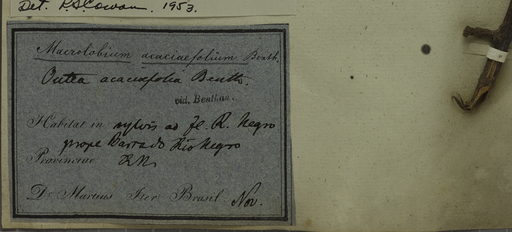 Det. R.S. Cowan. 1953.
Macrolobium acaciaefolium Benth.
Outea acaciaefolia Benth.
vid. Bentham.
Habitat in sylvis ad fl. R. Negro
prope Barra do Rio Negro
Provinciae R.N.
Dr. Martius Iter Brasil. Nov.